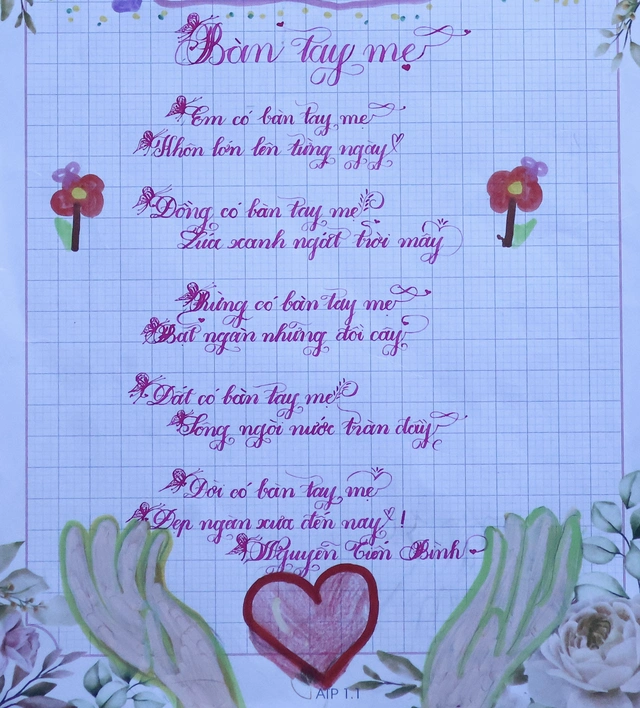 Bàn tay mẹ
Em có bàn tay mẹ
Nhôn lớn lên từng ngày
Đồng có bàn tay mẹ
Lúa xanh ngát trời mây
Rừng có bàn tay mẹ
Bạt ngàn những đồi cây
Đất có bàn tay mẹ
Sông ngòi nước tràn đầy
Đời có bàn tay mẹ
Đẹp ngàn xưa đến nay!
Nguyễn Tiến Bình
AIP 1.1